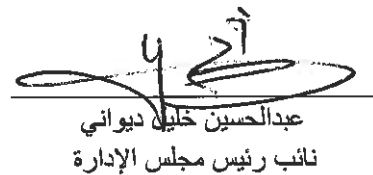 عبدالحسين خليل ديواني
نائب رئيس مجلس الإدارة